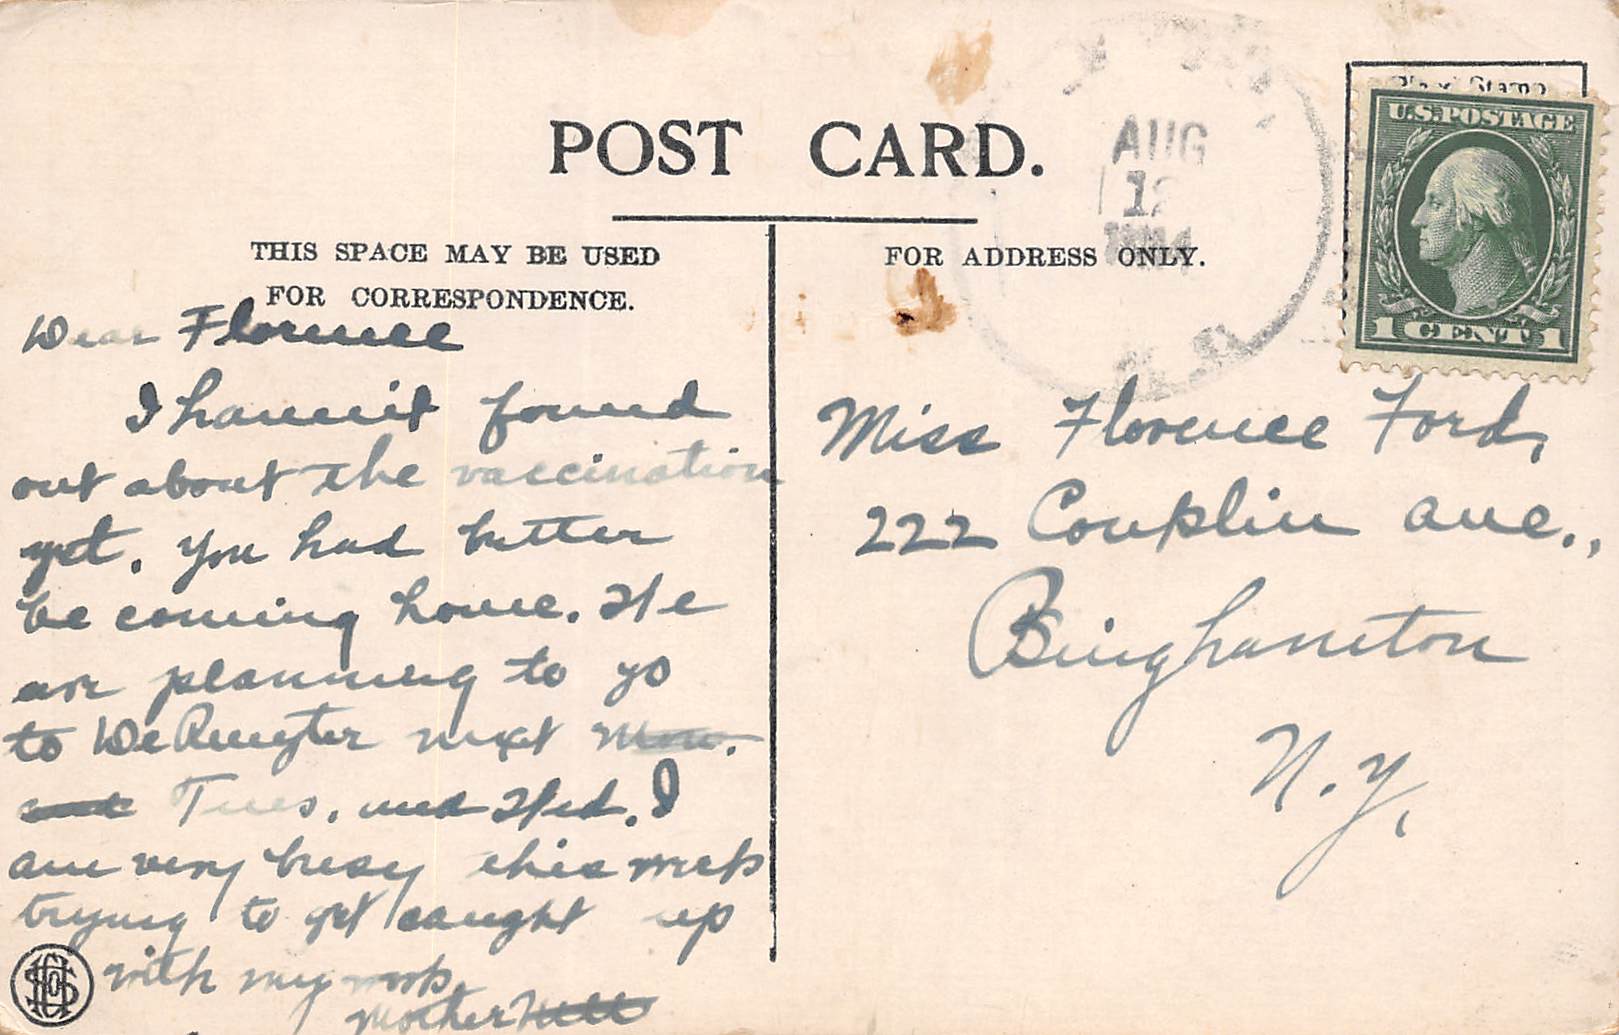 POST CARD.
THIS SPACE MAY BE USED
FOR CORRESPONDENCE.
FOR ADDRESS ONLY.
AUG
12
Place Stamp
U.S. POSTAGE
1 CENT 1
Dear Florence
I havenit found
out about the vaccination
yet. You had better
be coming home. We
are planning to go
to DeRuyter next Mon.
and Tues. and Wed. I
am very busy this week
trying to get caught up
with my work.
Mother
Miss Florence Ford,
222 Conklin Ave.,
Binghamton
N.Y,